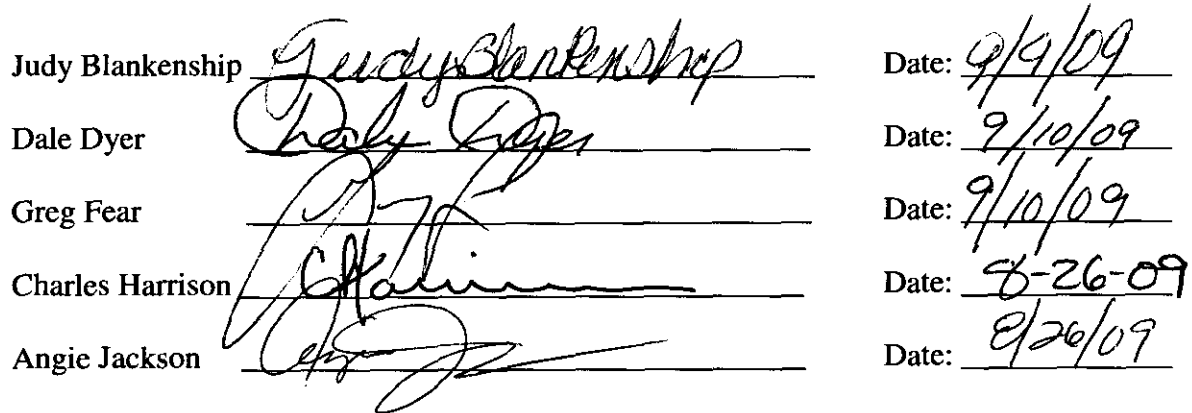 Judy Blankenship Judy Blankenship Date: 9/9/09
Dale Dyer Date: 9/10/09
Greg Fear Date: 9/10/09
Charles Harrison Date: 8-26-09
Angie Jackson Date: 8/26/09